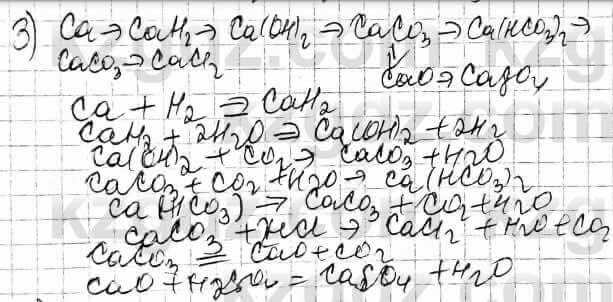 3) Ca → CaH2 → Ca(OH)2 → CaCO3 → Ca(HCO3)2 →
CaCO3 → CaCl2 ↓ CaO → CaSO4
Ca + H2 = CaH2
CaH2 + 2H2O = Ca(OH)2 + 2H2
Ca(OH)2 + CO2 → CaCO3 + H2O
CaCO3 + CO2 + H2O → Ca(HCO3)2
Ca(HCO3) → CaCO3 + CO2 + H2O
CaCO3 + HCl → CaCl2 + H2O + CO2
CaCO3 = CaO + CO2
CaO + H2SO4 = CaSO4 + H2O